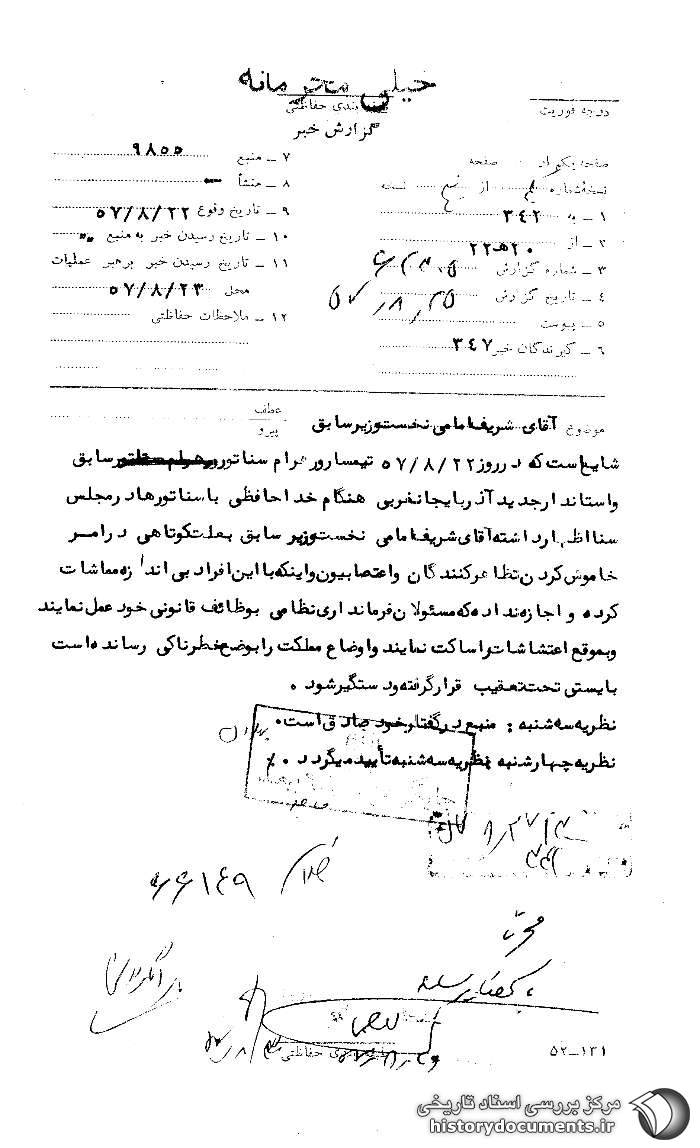 خیلی محرمانه
بندی حفاظتی
درجه فوریت
گزارش خبر
صفحه یکم از صفحه
نسخه شماره از نسخه
۱ ـ به ۳۴۲
۲ ـ از ۲۰هـ۲۲
۳ ـ شماره گزارش
۴ ـ تاریخ گزارش ۵۷/۸/۲۵
۵ ـ پیوست
۶ ـ گیرندگان خبر ۳۴۷
۷ ـ منبع ۹۸۵۵
۸ ـ منشأ ـ
۹ ـ تاریخ وقوع ۵۷/۸/۲۲
۱۰ ـ تاریخ رسیدن خبر به منبع "
۱۱ ـ تاریخ رسیدن خبر برهبر عملیات
محل ۵۷/۸/۲۳
۱۲ ـ ملاحظات حفاظتی
موضوع آقای شریف امامی نخست وزیر سابق
عطف
پیرو
شایع است که در روز ۵۷/۸/۲۲ تیمسار ورهرام سناتور سابق
واستاندار جدید آذربایجانغربی هنگام خداحافظی با سناتورها در مجلس
سنا اظهار داشته آقای شریف امامی نخست وزیر سابق بعلت کوتاهی در امر
خاموش کردن تظاهرکنندگان واعتصابیون واینکه با این افراد بی اندازه مماشات
کرده و اجازه نداده که مسئولان فرمانداری نظامی بوظائف قانونی خود عمل نمایند
وبموقع اغتشاشات را ساکت نمایند واوضاع مملکت را بوضع خطرناکی رسانده است
بایستی تحت تعقیب قرار گرفته و دستگیر شود .
نظریه سه شنبه : منبع در گفتار خود صادق است .
نظریه چهارشنبه : نظریه سه شنبه تأیید میگردد . ٪
۶۶۱۴۹
بندی حفاظتی
۵۲ـ۱۳۱
مرکز بررسی اسناد تاریخی
historydocuments.ir